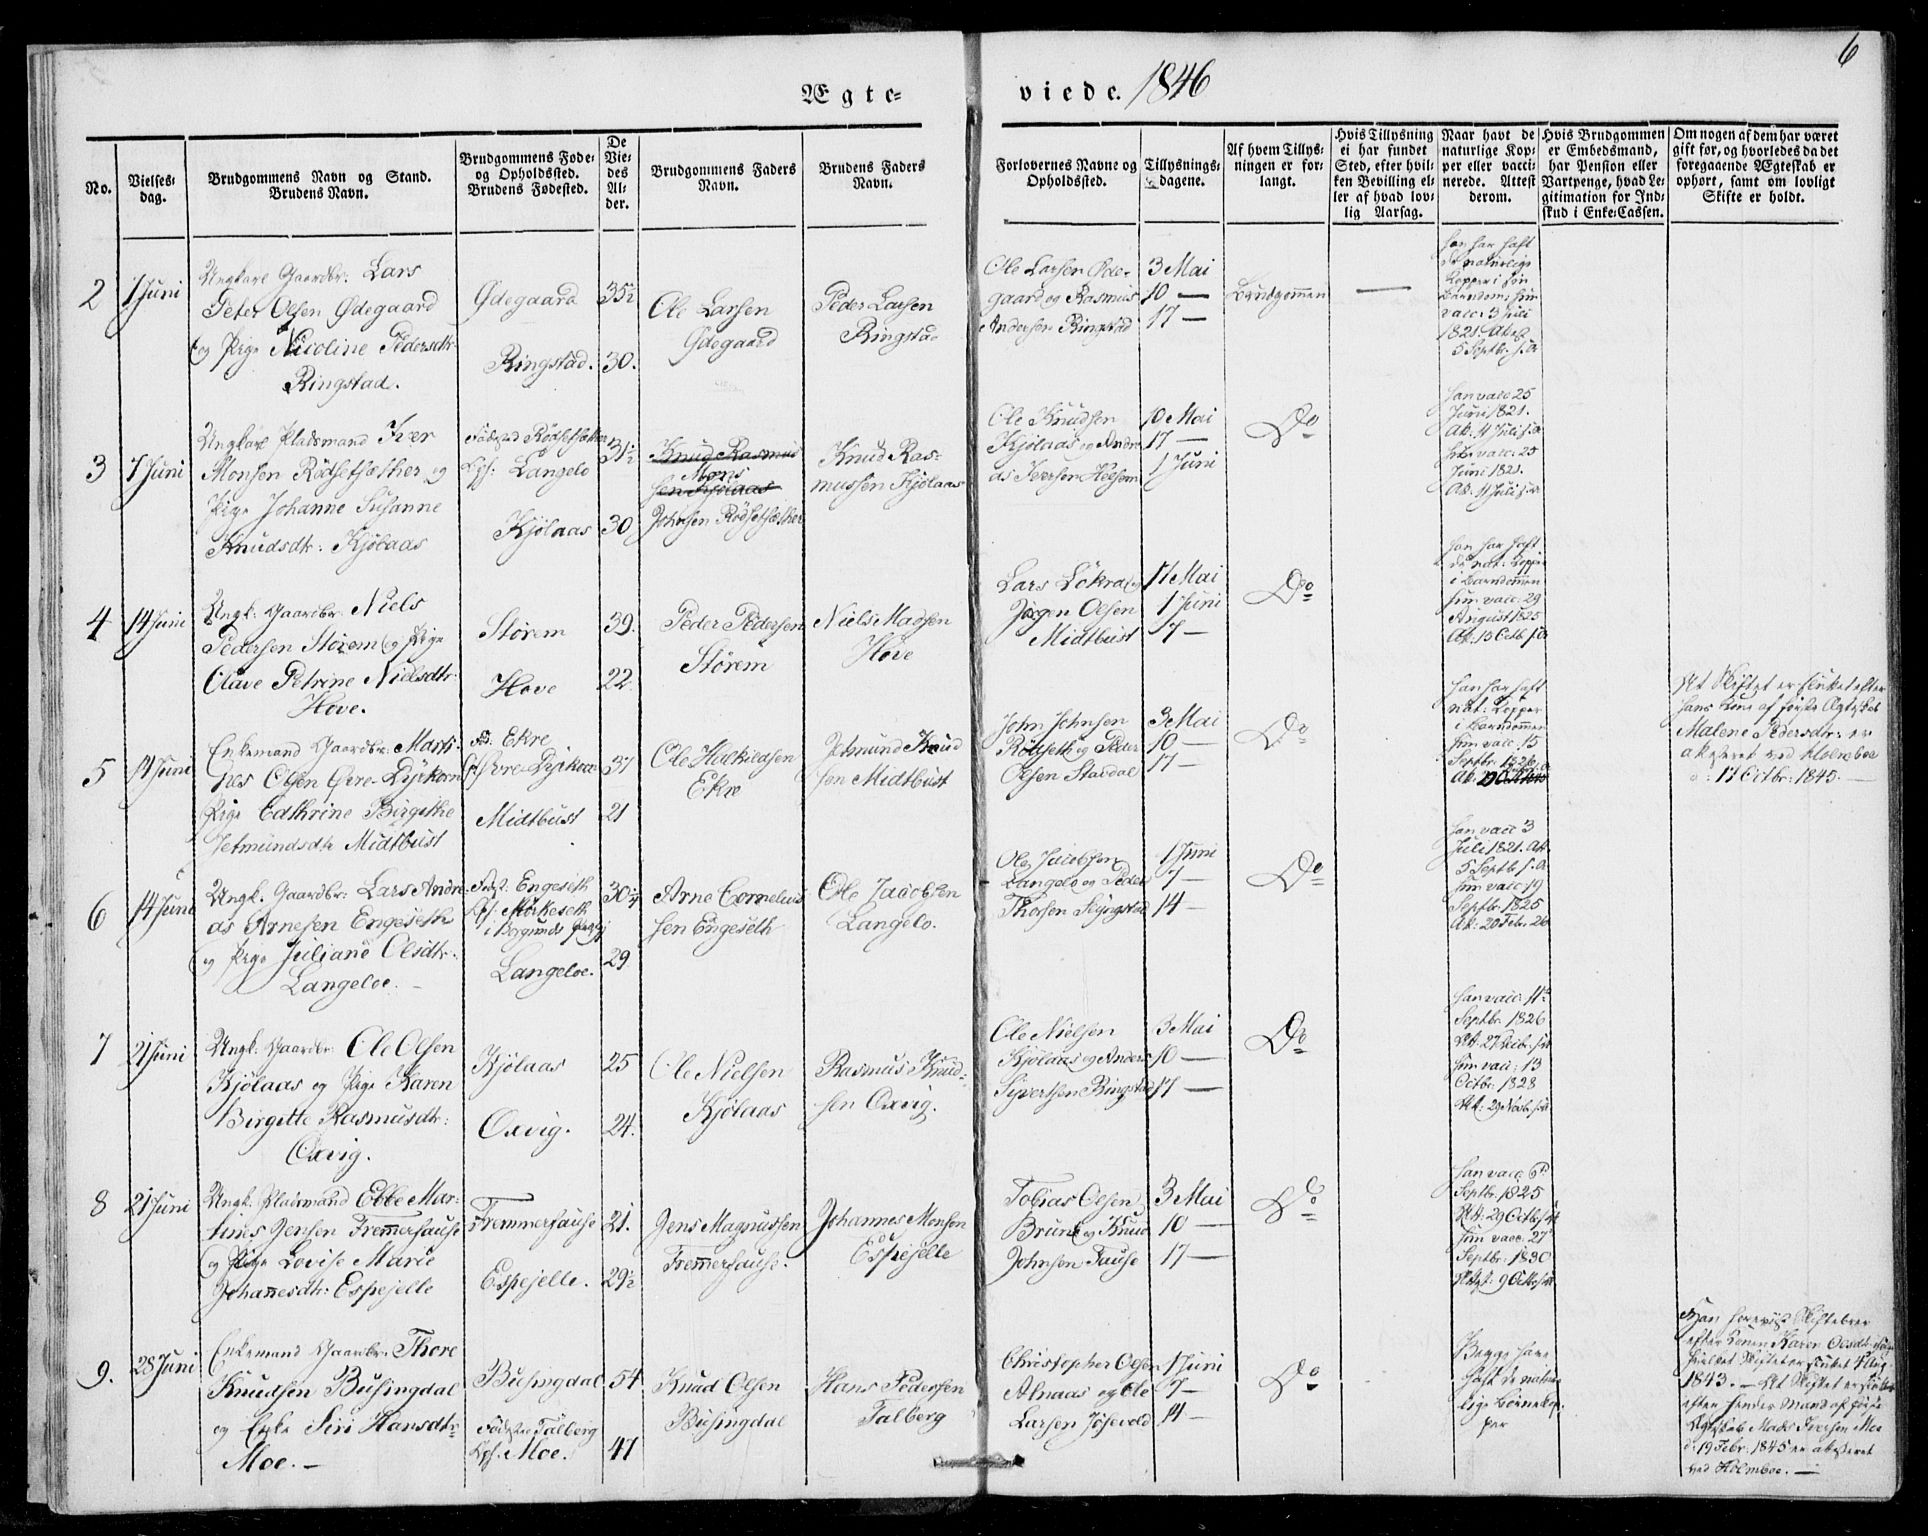 6
Ægte-
viede. 1846
No.
Vielses-
dag.
Brudgommens Navn og Stand.
Brudens Navn.
Brudgommens Føde-
og Opholdssted.
Brudens Fødested.
De
Vie-
des
Al-
der.
Brudgommens Faders
Navn.
Brudens Faders
Navn.
Forlovernes Navne og
Opholdssted.
Tillysnings-
dagene.
Af hvem Tillys-
ningen er for-
langt.
Hvis Tillysning
ei har fundet
Sted, efter hvil-
ken Bevilling el-
ler af hvad lov-
lig Aarsag.
Naar havt de
naturlige Kop-
per eller vacci-
nerede. Attest
derom.
Hvis Brudgommen
er Embedsmand,
har Pension eller
Vartpenge, hvad Le-
gitimation for Ind-
skud i Enke-Cassen.
Om nogen af dem har været
gift før, og hvorledes da det
foregaaende Ægteskab er
ophørt, samt om lovligt
Skifte er holdt.
2
1 Juni
Ungkarl Gaardbr: Lars
Peter Olsen Ødegaard
og Pige Nicoline Pedersdtr
Ringstad.
Ødegaard
Ringstad.
35½
30.
Ole Larsen
Ødegaard
Peder Larsen
Ringstad
Ole Larsen Øde-
gaard og Rasmus
Andersen Ringstad
3 Mai
10 —
17 —
Brudgommen
—
han har haft
naturlige
Kopper i sin
Barndom hun
vacc: 3 Juli
1821 At:
5 Septbr. s.A
3
1 Juni
Ungkarl Pladsmand Iver
Monsen Rödsetsæther og
Pige Johanne Susanne
Knudsdtr: Kjölaas
Födested Rödsetsæther
Opf: Langelo
Kjölaas
31½
30
Knud Rasmus
Mons
sen Kjölaas
Johnsen Rödsetsæther
Knud Ras-
mussen Kjölaas
Ole Knudsen
Kjölaas og Andre
as Iversen Helsem
10 Mai
17 —
1 Juni
Do
han vacc 25
Juni 1821.
At: 4 Juli s.A
hun vacc: 25
Juni 1821.
At: 4 Juli s.A
4
14 Juni
Ungk: Gaardbr: Niels
Pedersen Störem og Pige
Olave Petrine Nielsdtr
Hove.
Störem
Hove
39.
22
Peder Pedersen
Störem
Niels Madsen
Hove
Lars Lökra og
Jörgen Olsen
Midtbust
17 Mai
1 Juni
7 —
Do
han har haft
de nat: Kopper
i Barndommen
hun vacc: 29
August 1825
At: 15 Octb s.A
5
14 Juni
Enkemand Gaardbr: Marti-
nus Olsen Övre-Dyrkorn
Pige Cathrine Birgithe
Jetmundsdtr Midtbust
Fød: Ekre
Opf: Övre-Dyrkorn
Midtbust
37
21
Ole Halkildsen
Ekre
Jetmund Knud
sen Midtbust
John Johnsen
Rödseth og Peder
Olsen Stavdal
3 Mai
10 —
17 —
Do
han har haft
nat: Kopper
i Barndommen
hun vacc 15
Septbr: 1826
At Skiftet er sluttet efter
hans Kone af første Ægteskab
Malene Pedersdtr: er
attesteret ved Holmboe
d: 17 Octbr: 1845. —
6
14 Juni
Ungk. Gaardbr: Lars Andre-
as Arnesen Engeseth
og Pige Juliane Olsdtr:
Langeloe. —
Födst: Engeseth
Opf: Mörkeseth
i Borgunds Prgj
Langeloe.
30¼
29
Arne Cornelius
sen Engeseth
Ole Jacobsen
Langelo.
Ole Jacobsen
Langelo og Peder
Thorsen Slyngstad
1 Juni
7 —
14 —
Do
han vacc 3
Juli 1821. At
5 Septb s.A
hun vacc 19
Septbr: 1825
At: 20 Febr: 26
7
21 Juni
Ungk: Gaardbr: Ole Olsen
Kjölaas og Pige Karen
Birgitte Rasmusdtr:
Oxvig.
Kjölaas
Oxvig.
25
24.
Ole Nielsen
Kjölaas
Rasmus Knud-
sen Oxvig.
Ole Nielsen
Kjölaas og Anders
Sivertsen Ringstad
3 Mai
10 —
17 —
Do
han vacc: 11te
Septbr: 1826
hun vacc: 13
Octbr: 1828
At: 29 Novb. s.A
8
21 Juni
Ungk. Pladsmand Ebbe Mar-
tines Jensen Fremmerhause
og Pige Lovise Marie
Johannesdtr: Espejelle
Fremmerhause
Espejelle.
21.
29½
Jens Magnussen
Fremmerhause.
Johannes Monsen
Espejelle
Tobias Olsen
Brune og Knud
Johnsen Fause
3 Mai
10 —
17 —
Do
han vacc: 6
Septbr: 1825
At: 29 Octb s.A
hun vacc: 27
Septbr: 1830
Att: 9 Octb s.A
9.
28 Juni
Enkemand Gaardbr: Thore
Knudsen Busingdal
og Enke Siri Hansdtr
Moe. —
Busingdal
Födested Talberg
Opf: Moe.
54
47
Knud Olsen
Busingdal
Hans Pedersen
Talberg
Christopher Olsen
Alnaas og Ole
Larsen Jösevold
1 Juni
7 —
14 —
Do
Begge have
haft de natur-
lige Børnekop-
per
Han foreviist Skiftebrev
efter Konen Karen Olsdtr
hvilket Skifte er sluttet 4 Aug
1843. — At Skiftet er sluttet
efter hendes Mand af første
Ægteskab Mads Iversen Moe
d: 19 Febr: 1845 er attesteret
ved Holmboe. —